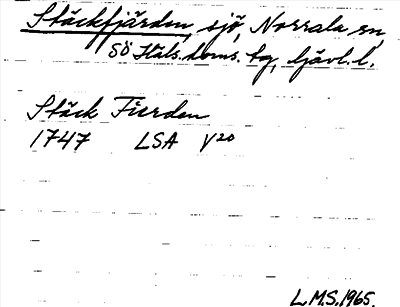 Stäckfjärden, sjö, Norrala sn,
SÖ Häls. doms. tg, Gävl. l.
Stäck Fierden
1747 LSA V20
L.M.S. 1965.